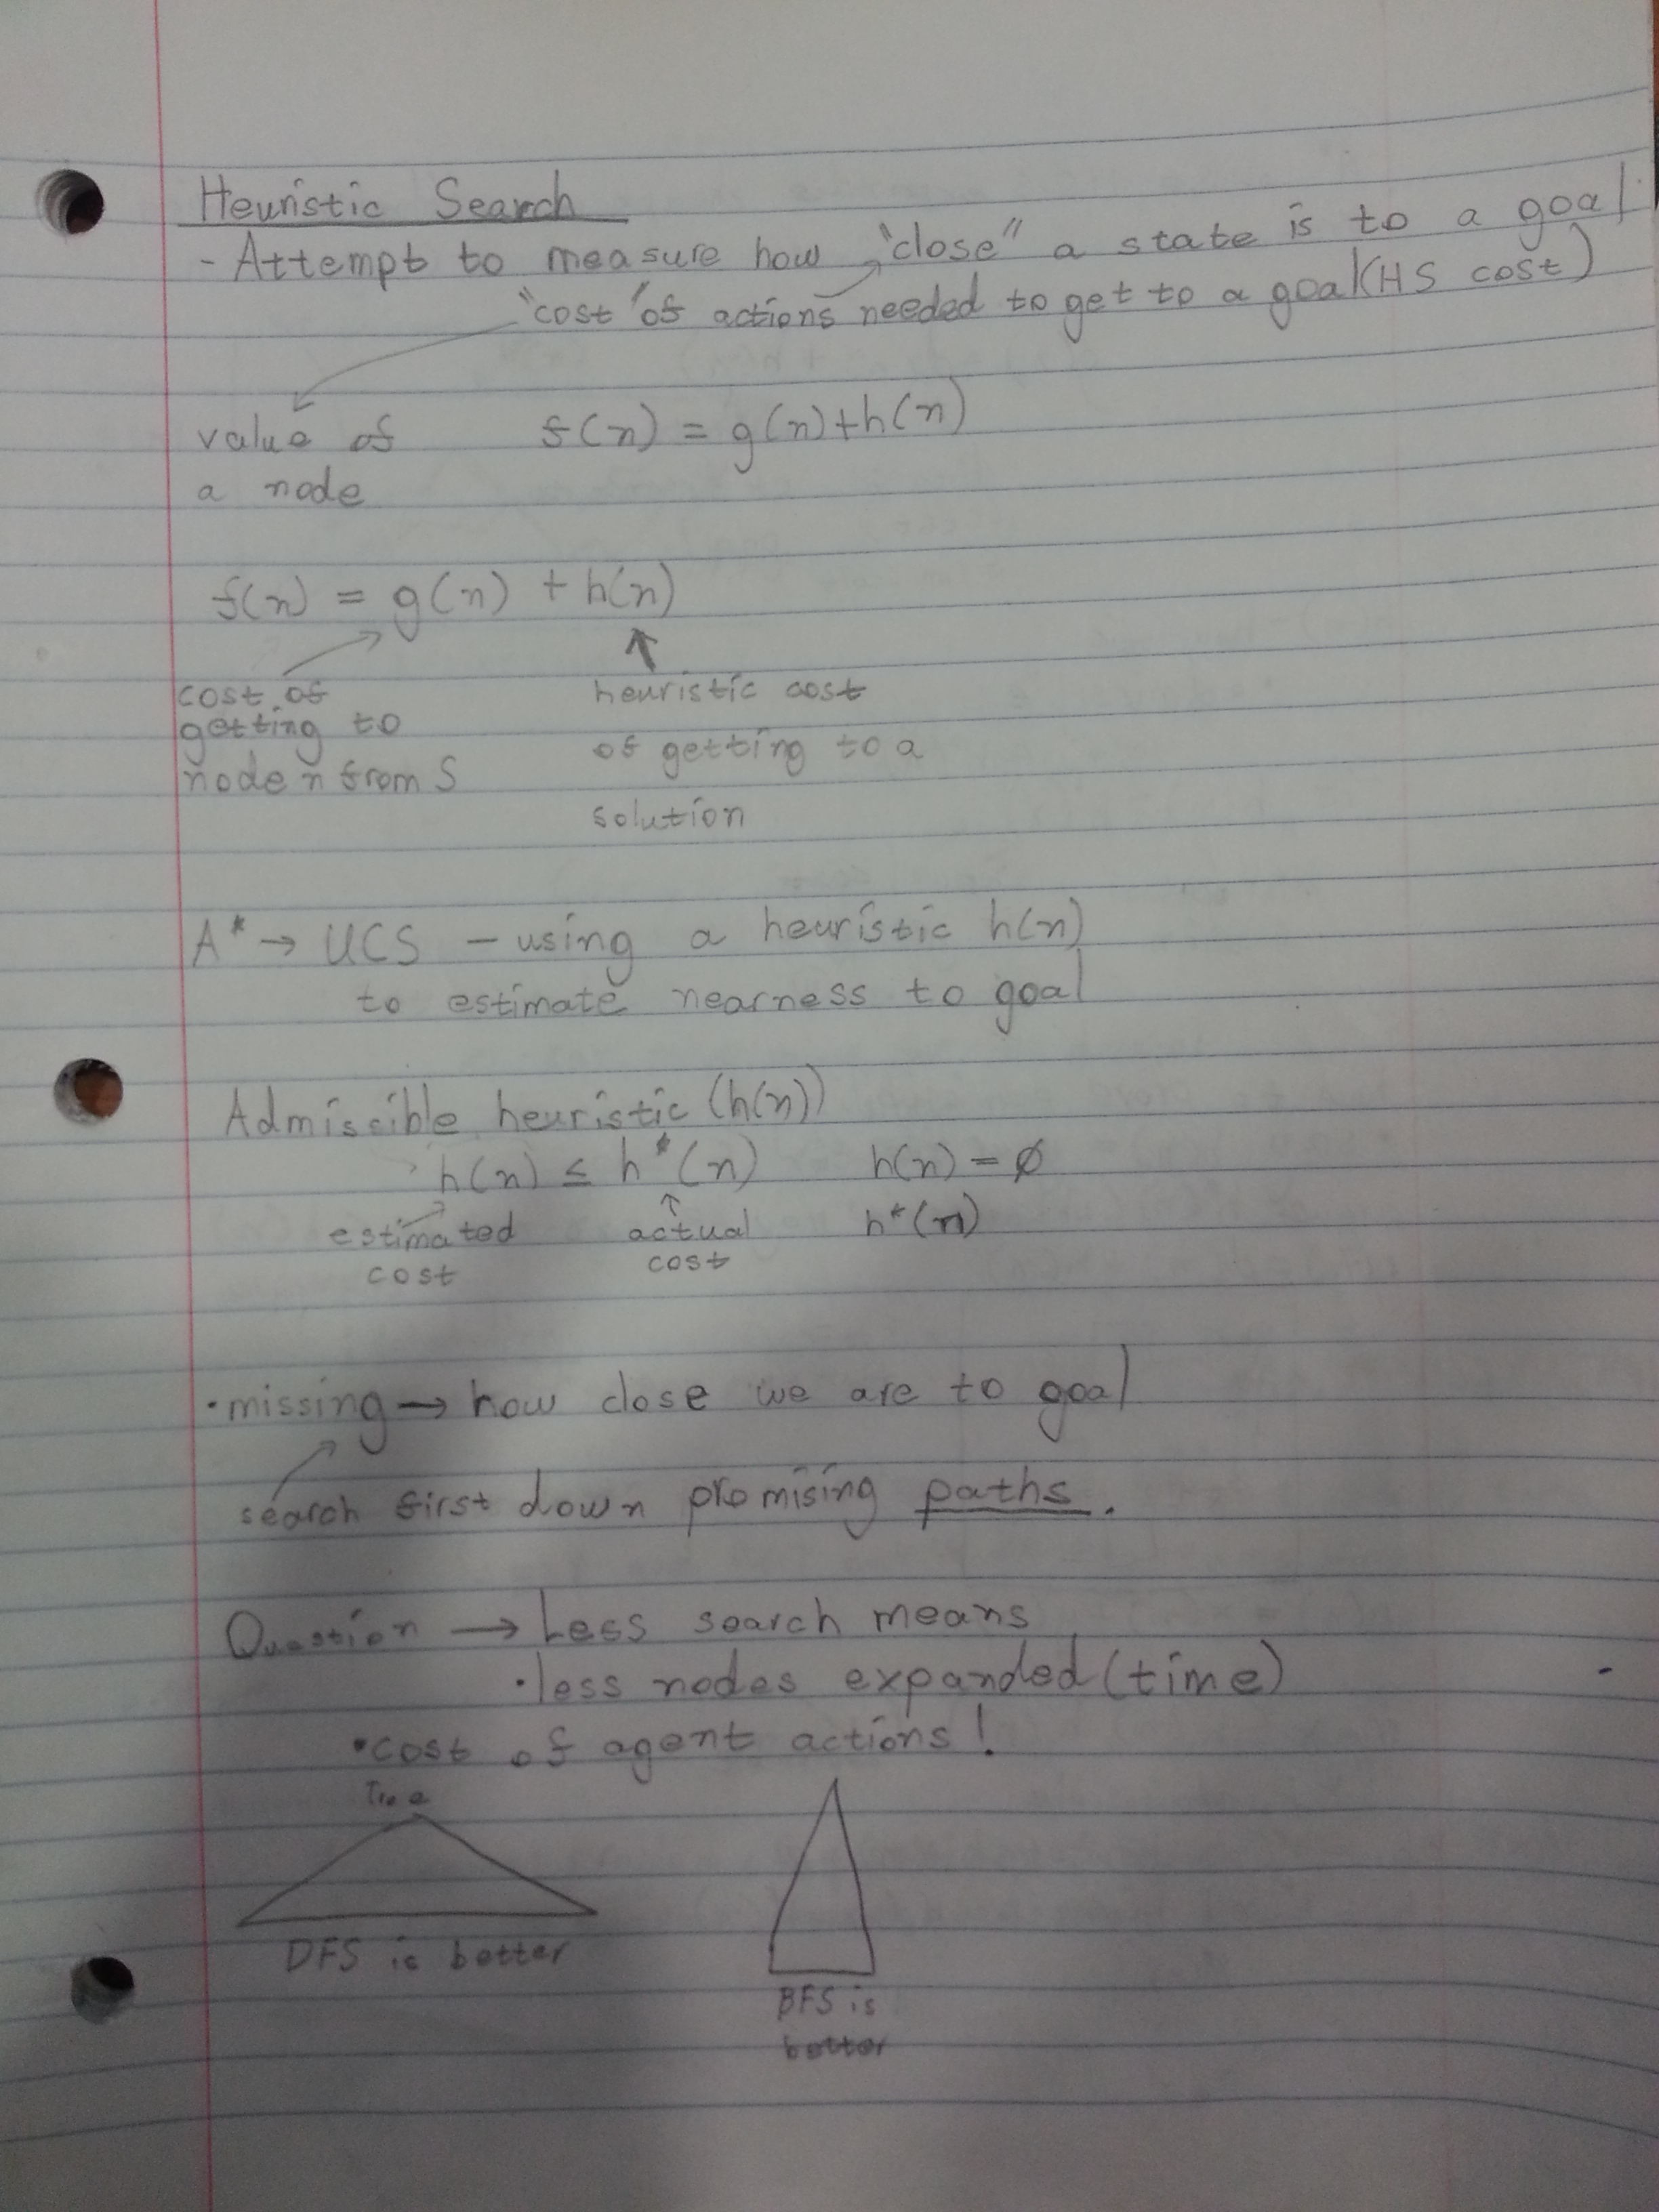 Heuristic Search
- Attempt to measure how "close" a state is to a goal
"cost" of actions needed to get to a goal (HS cost)
value of f(n) = g(n)+h(n)
a node
f(n) = g(n) + h(n)
cost of heuristic cost
getting to of getting to a
node n from S solution
A* → UCS - using a heuristic h(n)
to estimate nearness to goal
Admissible heuristic (h(n))
h(n) ≤ h*(n) h(n) = ∅
estimated actual h*(n)
cost cost
• missing → how close we are to goal
search first down promising paths.
Question → Less search means
• less nodes expanded (time)
• cost of agent actions!
Tree
DFS is better
BFS is
better